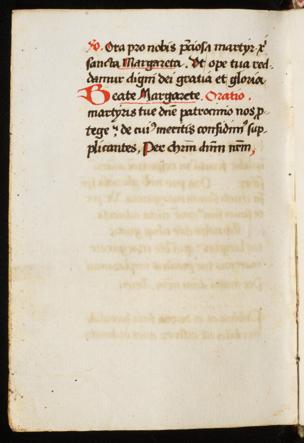 V. Ora pro nobis p̄ciosa martyr xi
sancta Margareta. Ut ope tua red-
damur digni dei gratia et gloria
Beate Margarete. Oratio.
martyris tue dn̄e patrocinio nos p̱
tege ut de cui⁹ meritis confidim⁹ sup-
plicantes. Per chrm̄ dn̄m nrm̄,